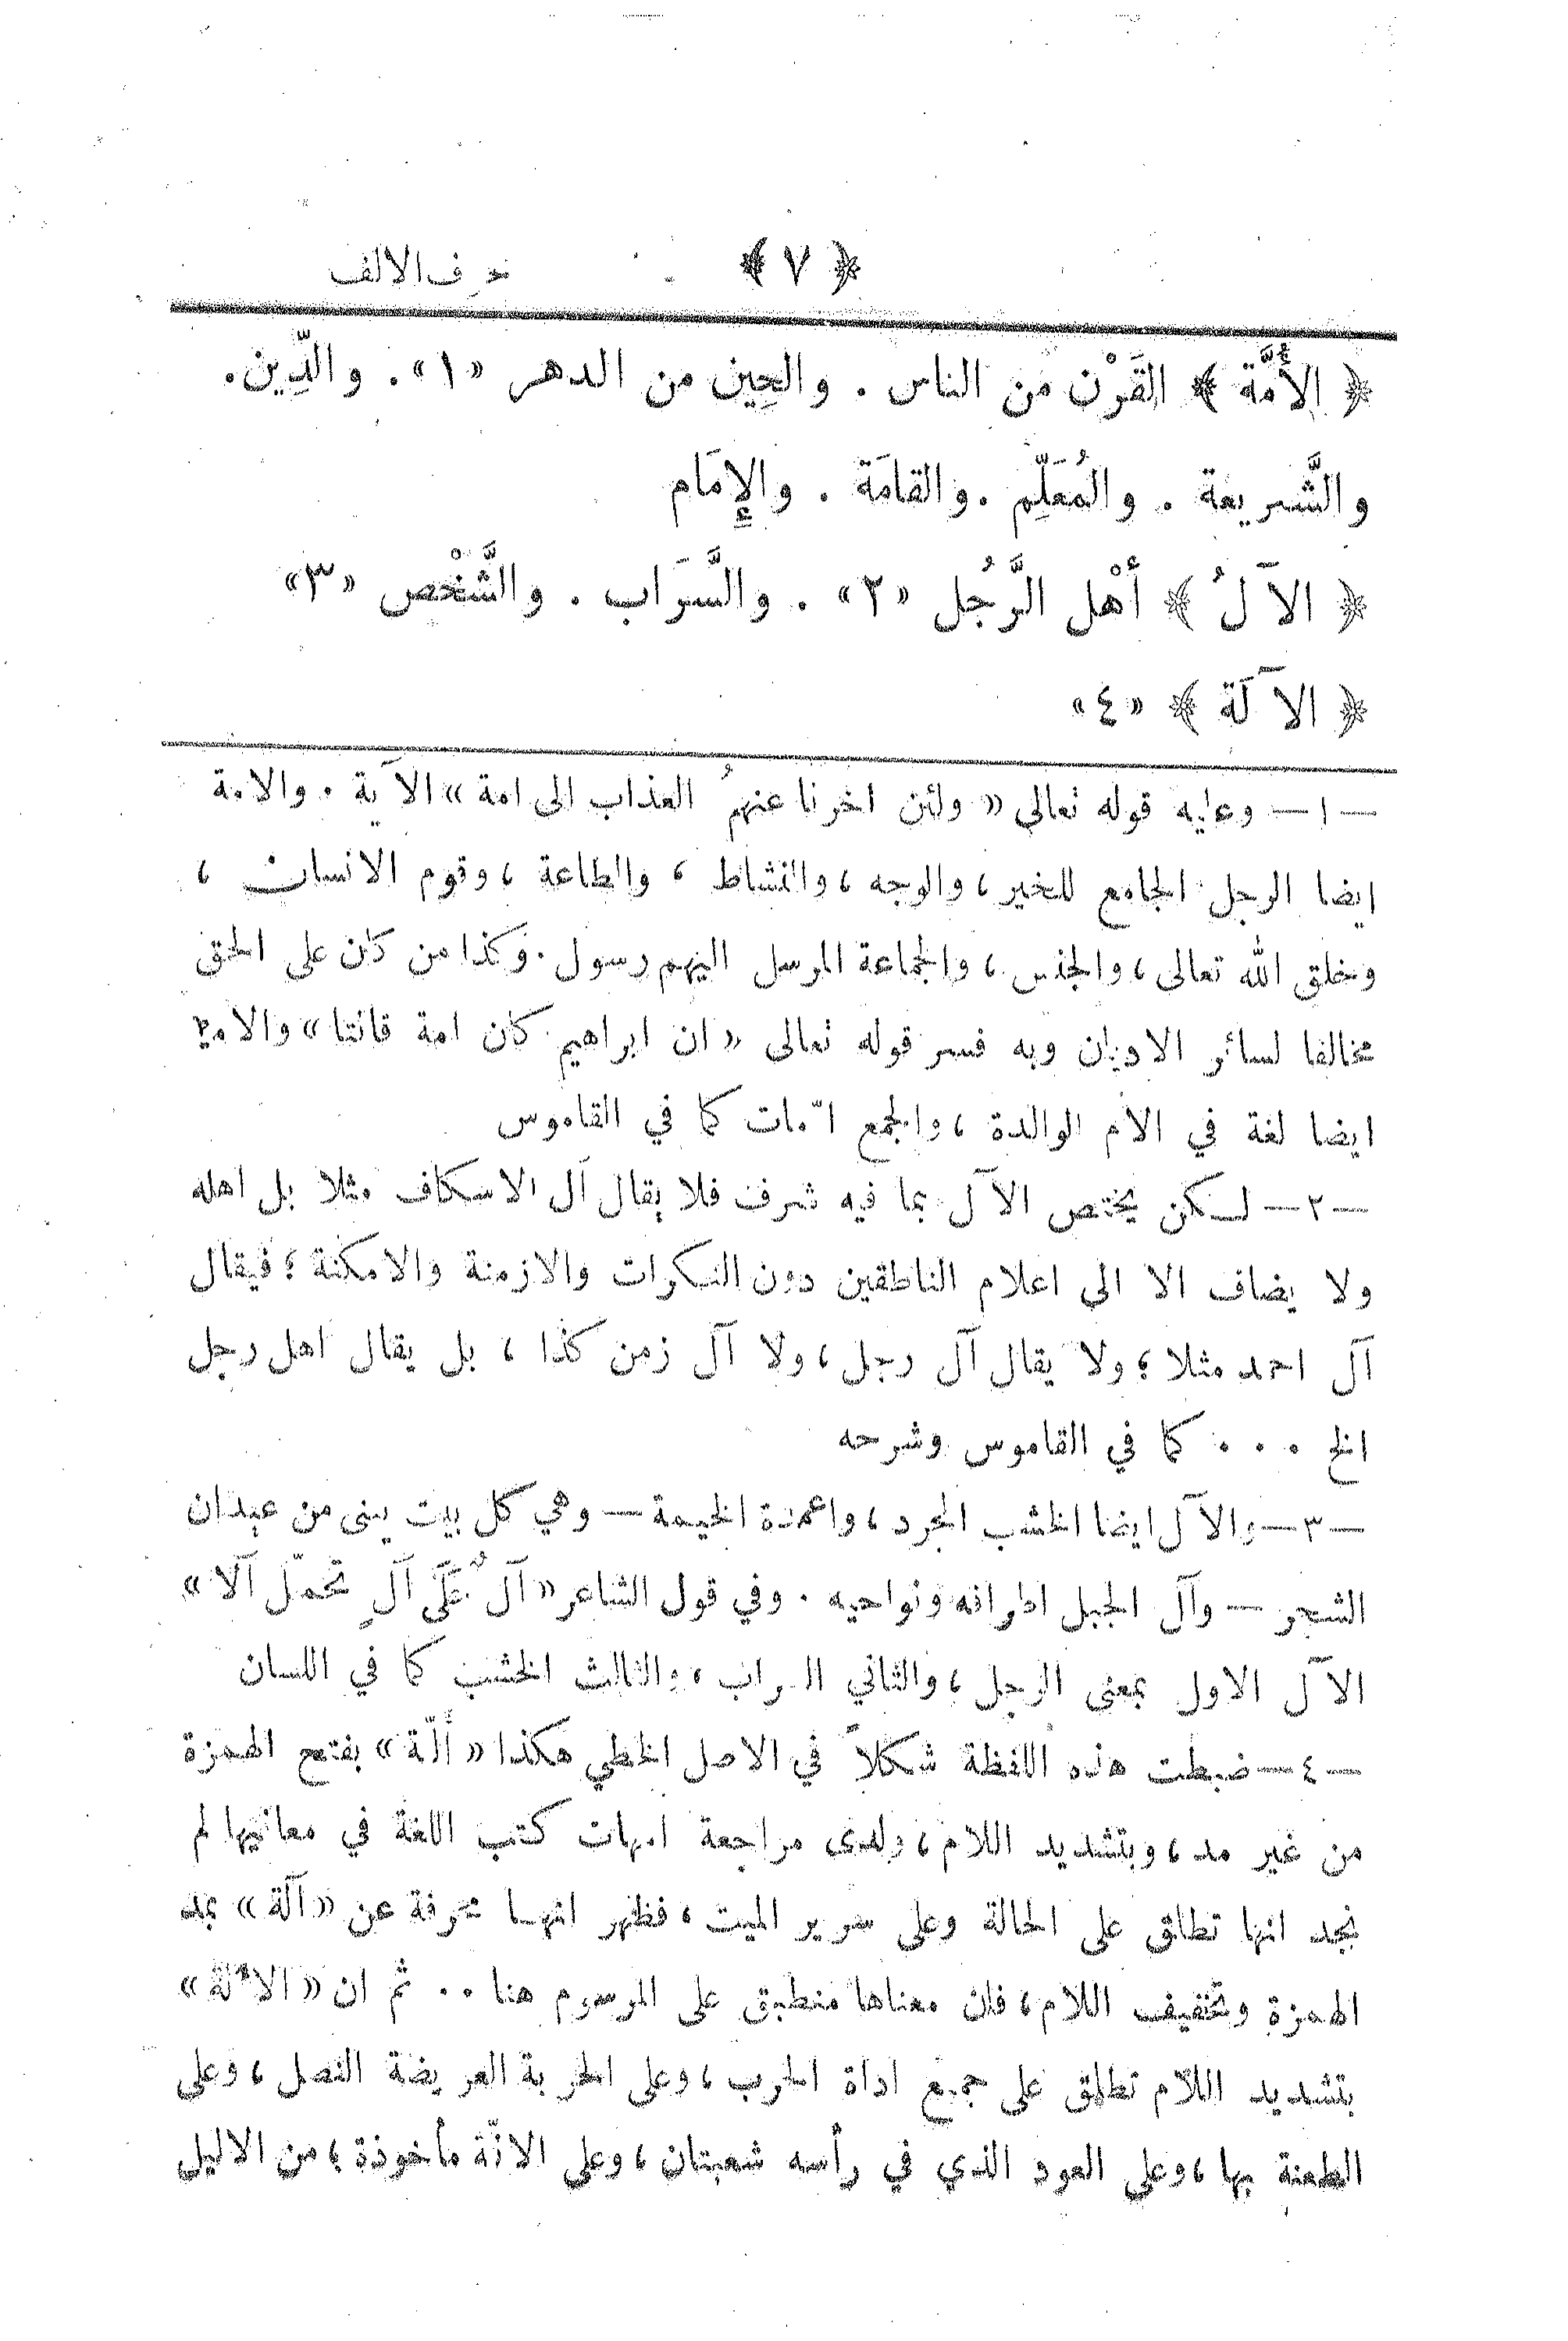 ﴿ ٧ ﴾ حرف الالف
﴿ الأُمَّة ﴾ القَرْن من الناس . والحِين من الدهر «١» . والدِّين .
والشَّريعة . والمُعَلِّم . والقامَة . والإِمَام
﴿ الآلُ ﴾ أَهْل الرَّجُل «٢» . والسَّرَاب . والشَّخْص «٣»
﴿ الآلَة ﴾ «٤»
—١— وعليه قوله تعالى « ولئن اخرنا عنهمُ العذاب الى امة » الآية . والامة
ايضا الرجل الجامع للخير ، والوجه ، والنشاط ، والطاعة ، وقوم الانسان ،
وخلق الله تعالى ، والجنس ، والجماعة المرسل اليهم رسول . وكذا من كان على الحق
مخالفا لسائر الاديان وبه فسر قوله تعالى « ان ابراهيم كان امة قانتا » والامة
ايضا لغة في الام الوالدة ، والجمع امّات كما في القاموس
—٢— لكن يختص الآل بما فيه شرف فلا يقال آل الاسكاف مثلا بل اهله
ولا يضاف الا الى اعلام الناطقين دون النكرات والازمنة والامكنة ؛ فيقال
آل احمد مثلا ؛ ولا يقال آل رجل ، ولا آل زمن كذا ، بل يقال اهل رجل
الخ . . . كما في القاموس وشرحه
—٣— والآل ايضا الخشب المجرد ، واعمدة الخيمة — وهي كل بيت يبنى من عيدان
الشجر — وآل الجبل اطرافه ونواحيه . وفي قول الشاعر « آلٌ عَلَى آلٍ تحمّل آلا »
الآل الاول بمعنى الرجل ، والثاني السراب ، والثالث الخشب كما في اللسان
—٤— ضبطت هذه اللفظة شكلاً في الاصل الخطي هكذا « أَلّة » بفتح الهمزة
من غير مد ، وبتشديد اللام ، ولدى مراجعة امهات كتب اللغة في معانيها لم
نجد انها تطلق على الحالة وعلى سرير الميت ، فظهر انها محرفة عن « آلة » بمد
الهمزة وتخفيف اللام ، فان معناها منطبق على المرسوم هنا . . ثم ان « الأَلّة »
بتشديد اللام تطلق على جميع اداة الحرب ، وعلى الحربة العريضة النصل ، وعلى
الطعنة بها ، وعلى العود الذي في رأسه شعبتان ، وعلى الانّة مأخوذة ، من الاليل